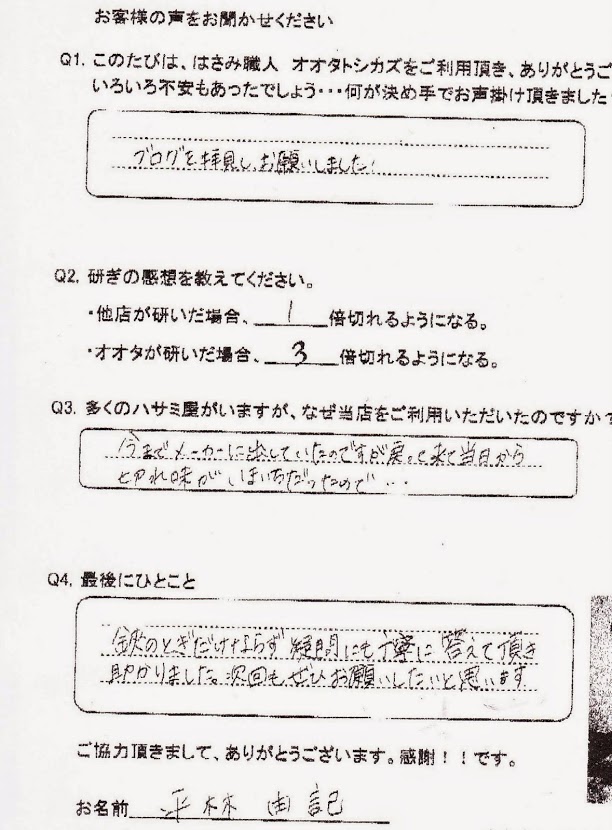 お客様の声をお聞かせください
Q1. このたびは、はさみ職人 オオタトシカズをご利用頂き、ありがとうご
いろいろ不安もあったでしょう・・・何が決め手でお声掛け頂きました
ブログを拝見し、お願いしました!
Q2. 研ぎの感想を教えてください。
・他店が研いだ場合、 1 倍切れるようになる。
・オオタが研いだ場合、 3 倍切れるようになる。
Q3. 多くのハサミ屋がいますが、なぜ当店をご利用いただいたのですか?
今までメーカーに出していたのですが戻って来て当日から
切れ味がいまいちだったので・・・
Q4. 最後にひとこと
のとぎだけならず疑問にも丁寧に答えて頂き
助かりました。次回もぜひお願いしたいと思います
ご協力頂きまして、ありがとうございます。感謝!!です。
お名前 平林 由記